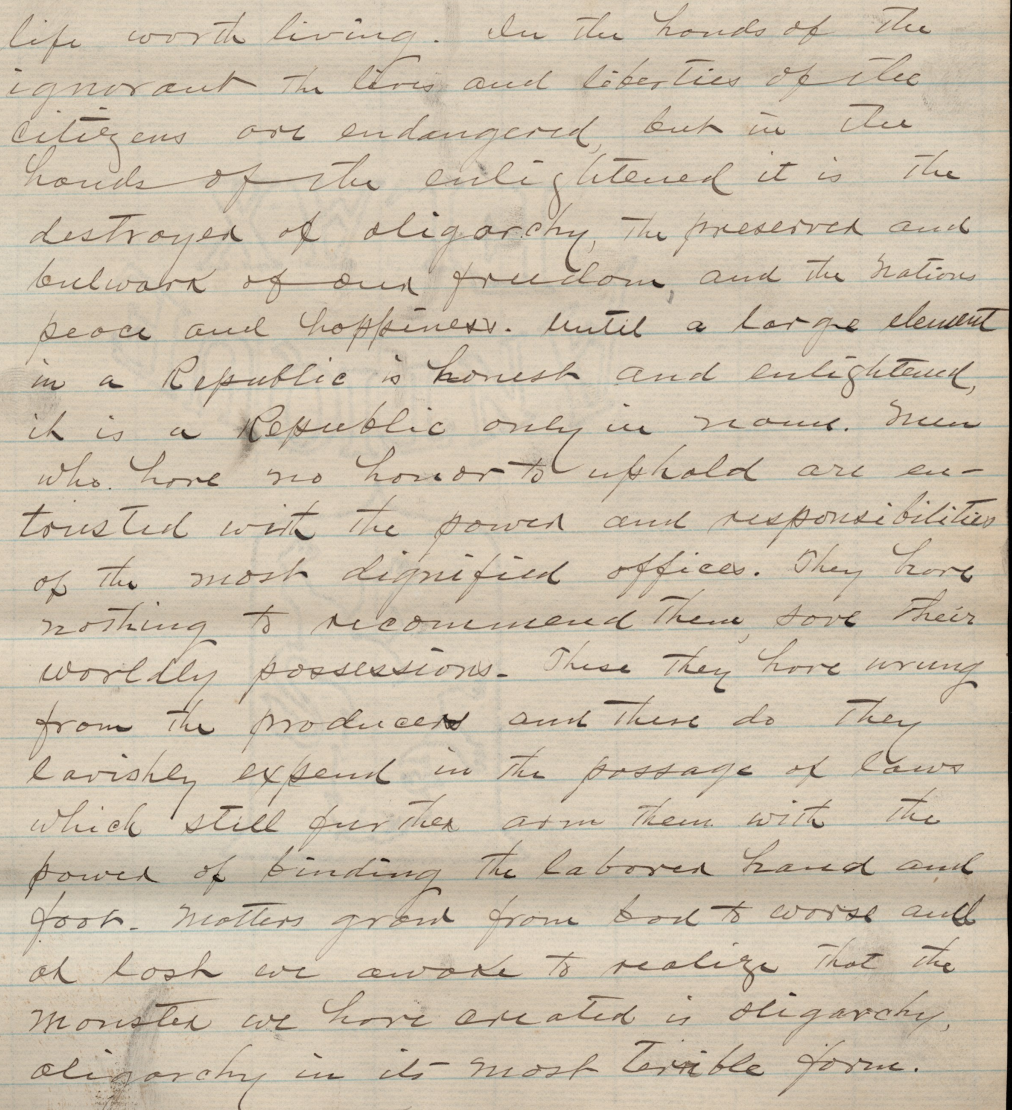 life worth living. In the hands of the
ignorant the lives and liberties of the
citizens are endangered, but in the
hands of the enlightened it is the
destroyer of oligarchy, the preserver and
bulwark of our freedom, and the Nations
peace and happiness. Until a large element
in a Republic is honest and enlightened,
it is a Republic only in name. Men
who have no honor to uphold are en-
trusted with the power and responsibilities
of the most dignified offices. They have
nothing to recommend them, save their
worldly possessions. These they have wrung
from the producers and these do they
lavishly expend in the passage of laws
which still further arm them with the
power of binding the laborer hand and
foot. Matters grow from bad to worse and
at last we awake to realize that the
Monster we have created is oligarchy,
oligarchy in its most terrible form.